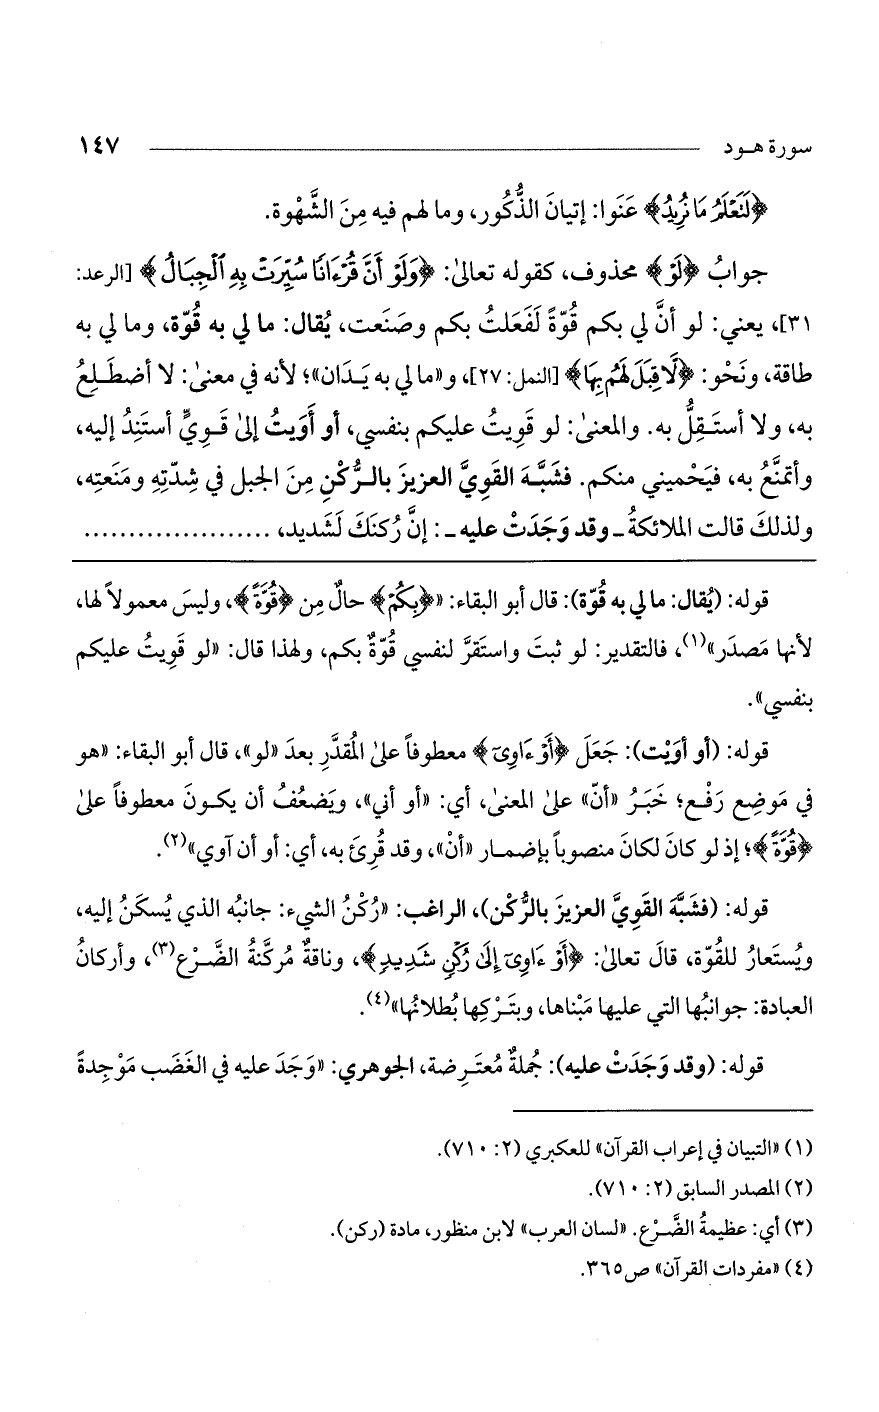 سورة هـود ١٤٧
﴿لَتَعْلَمُ مَا نُرِيدُ﴾ عَنَوا: إتيانَ الذُّكُور، وما لهم فيه مِنَ الشَّهْوة.
جوابُ ﴿لَوْ﴾ محذوف، كقوله تعالىٰ: ﴿وَلَوْ أَنَّ قُرْءَانًا سُيِّرَتْ بِهِ ٱلْجِبَالُ﴾ [الرعد:
٣١]، يعني: لو أنَّ لي بكم قُوّةً لَفَعَلتُ بكم وصَنَعت، يُقال: ما لي به قُوّة، وما لي به
طاقة، ونَحْو: ﴿لَّا قِبَلَ لَهُم بِهَا﴾ [النمل: ٢٧]، و«ما لي به يَـدَان»؛ لأنه في معنىٰ: لا أضطَـلِعُ
به، ولا أستَـقِلُّ به. والمعنىٰ: لو قَوِيتُ عليكم بنفسي، أو أَوَيتُ إلىٰ قَـوِيٍّ أستَنِدُ إليه،
وأتمنَّعُ به، فيَحْميني منكم. فشَبَّـهَ القَوِيَّ العزيزَ بالـرُّكْنِ مِنَ الجبل في شِدّتِهِ ومَنَعتِه،
ولذلكَ قالت الملائكةُ ـ وقد وَجَدَتْ عليه ـ: إنَّ رُكنَكَ لَشديد، .....................
قوله: (يُقال: ما لي به قُوّة): قال أبو البقاء: «﴿بِكُمْ﴾ حالٌ مِن ﴿قُوَّةً﴾، وليسَ معمولاً لها،
لأنها مَصدَر»(١)، فالتقدير: لو ثبتَ واستَقرَّ لنفسي قُوّةٌ بكم، ولهذا قال: «لو قَوِيتُ عليكم
بنفسي».
قوله: (أو أوَيْت): جَعَلَ ﴿أَوْ ءَاوِىٓ﴾ معطوفاً علىٰ المُقدَّرِ بعدَ «لو»، قال أبو البقاء: «هو
في مَوضِعِ رَفْع؛ خَبَرُ «أنّ» علىٰ المعنىٰ، أي: «أو أني»، ويَضعُفُ أن يكـونَ معطوفاً علىٰ
﴿قُوَّةً﴾؛ إذ لو كانَ لكانَ منصوباً بإضمـار «أنْ»، وقد قُرِئَ به، أي: أو أن آوي»(٢).
قوله: (فشَبَّهَ القَوِيَّ العزيزَ بالرُّكْن)، الراغب: «رُكْنُ الشيء: جانبُه الذي يُسكَنُ إليه،
ويُستَعارُ للقُوّة، قالَ تعالىٰ: ﴿أَوْ ءَاوِىٓ إِلَىٰ رُكْنٍ شَدِيدٍ﴾، وناقةٌ مُركَّنةُ الضَّـرْع(٣)، وأركانُ
العبادة: جوانبُها التي عليها مَبْناها، وبتَـرْكِها بُطلانُها»(٤).
قوله: (وقد وَجَدَتْ عليه): جُملةٌ مُعتَـرِضة، الجوهري: «وَجَدَ عليه في الغَضَب مَوْجِدةً
(١) «التبيان في إعراب القرآن» للعكبري (٢: ٧١٠).
(٢) المصدر السابق (٢: ٧١٠).
(٣) أي: عظيمةُ الضَّـرْع. «لسان العرب» لابن منظور، مادة (ركن).
(٤) «مفردات القرآن» ص٣٦٥.